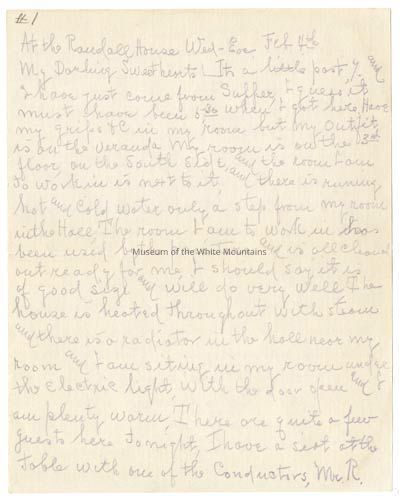 #1
At the Randall House Wed-Eve Feb 4th
My Darling Sweethearts! Its a little past 7 and
I have just come from Supper, I guess it
must have been 6 30 when I got here, Have
my grips &C in my room but my Outfit
is on the veranda My room is on the 3rd
floor on the South Side and the room I am
to work in is next to it, and there is runing
hot and Cold water only a step from my room
in the Hall, The room I am to work in has
been used and is all cleaned
out ready for me, I should say it is
of good size and will do very well The
house is heated throughout with steam
and there is a radiator in the hall near my
room and I am siting in my room under
the Electric light, with the door open and I
am plenty warm, There are quite a few
guests here tonight, I have a seat at the
table with one of the Conductors, Mr. R.
Museum of the White Mountains